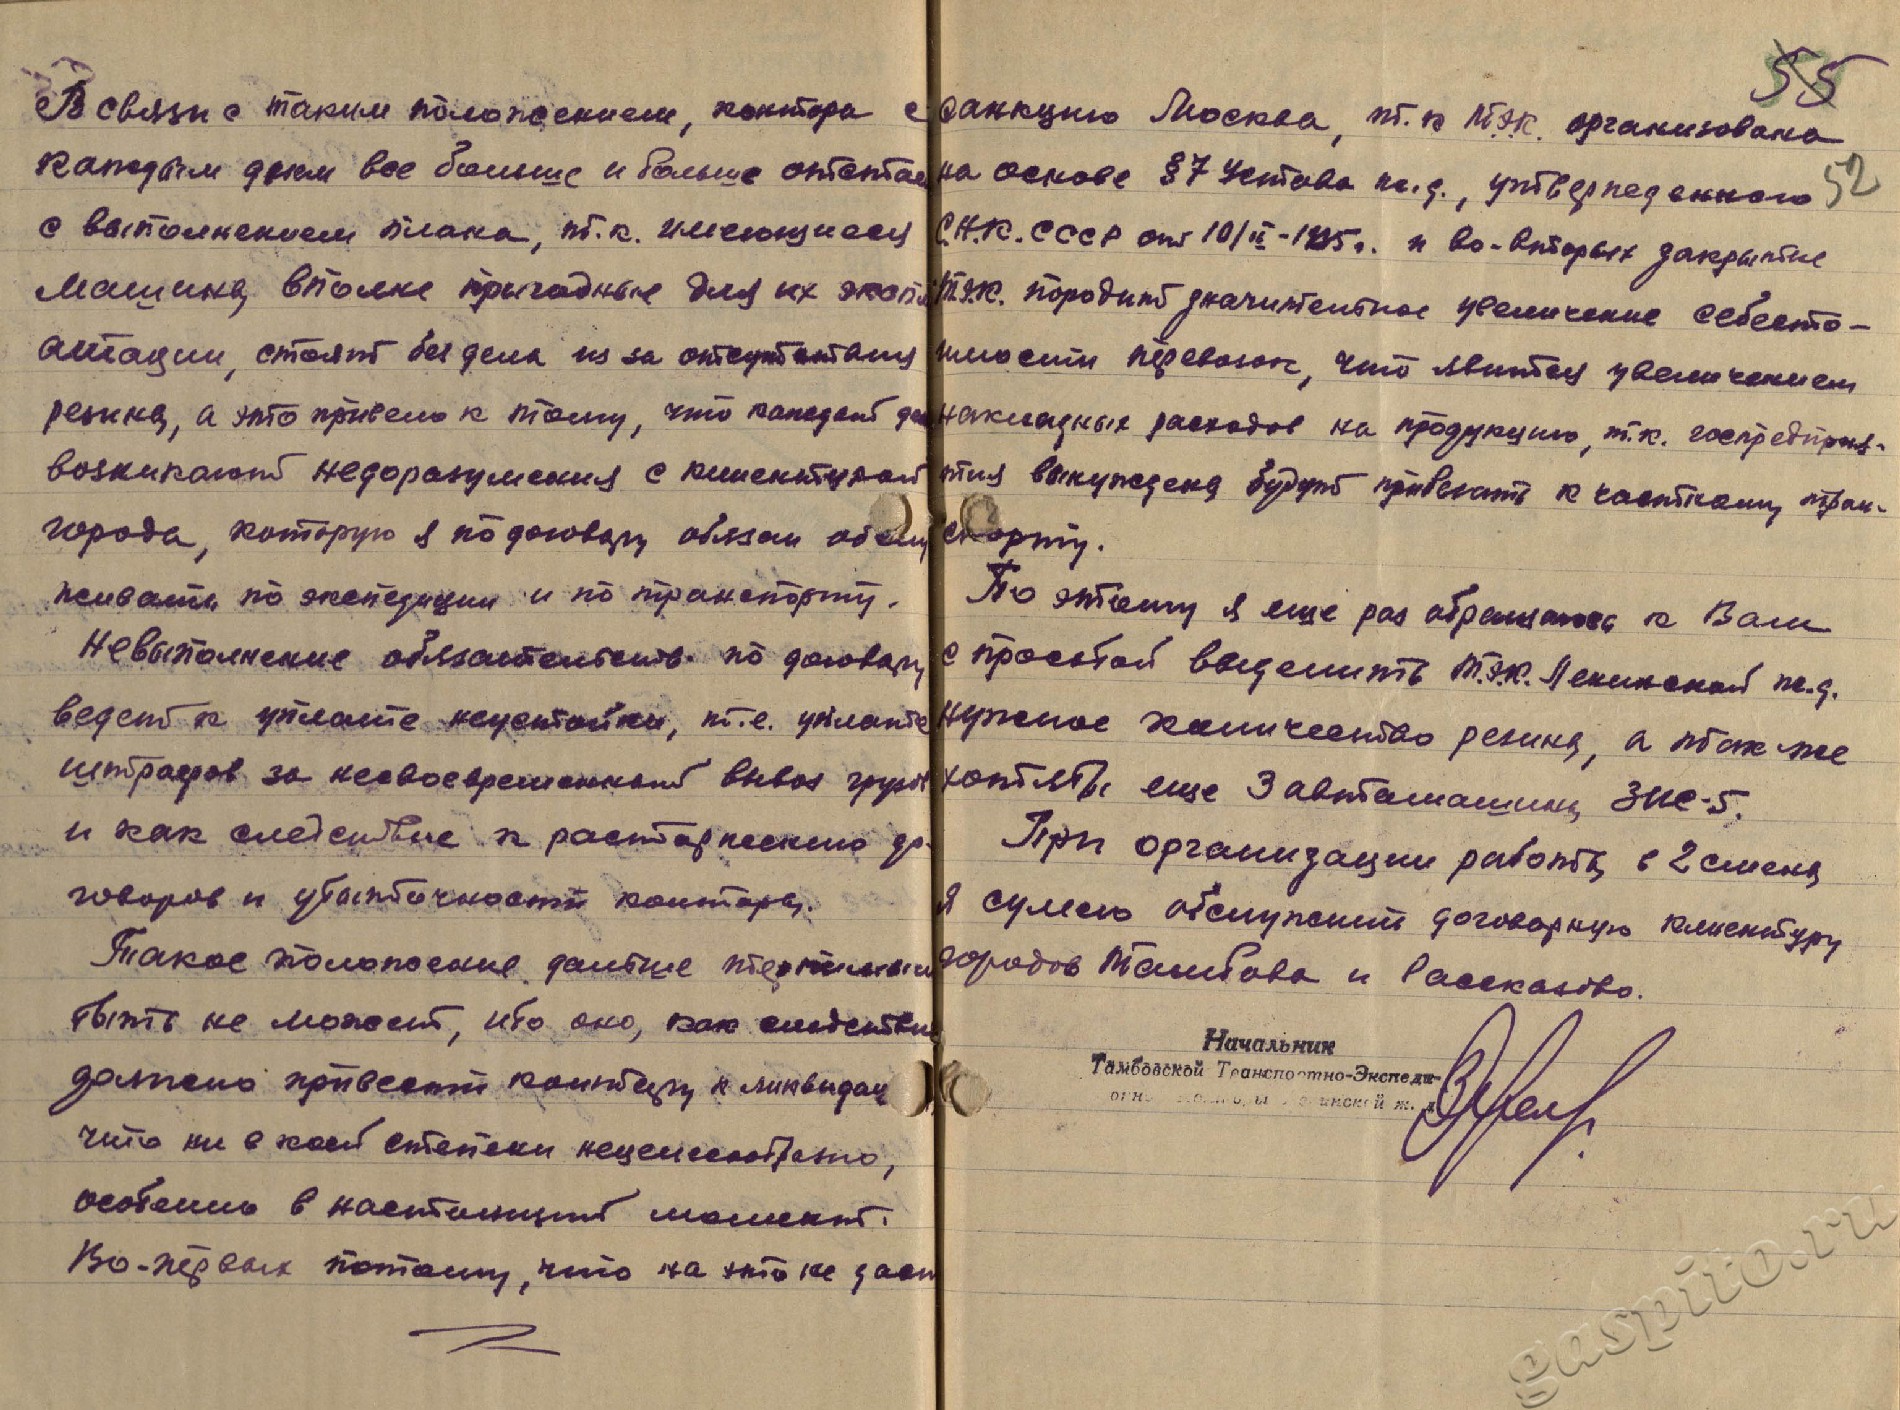 В связи с таким положением, контора с
каждым днем все больше и больше отстает
с выполнением плана, т.к. имеющиеся
машины, вполне пригодные для их экспл
атации, стоят без дела из за отсутствия
резины, а это привело к тому, что каждый ден
возникают недоразумения с клиентурой
города, которую я по договору обязан обслу
живать по экспедиции и по транспорту.
Невыполнение обязательств по договору
ведет к уплате неустойки, т.е. уплате
штрафов за несвоевременный вывоз грузов
и как следствие к расторжению до-
говоров и убыточности конторы.
Такое положение дальше терпимым
быть не может, ибо оно, как следствие
должно привести контору к ликвидац
что ни в коей степени нецелесообразно,
особенно в настоящий момент.
Во-первых потому, что на это не даст
55
санкцию Москва, т.к Т.Э.К. организована
на основе §7 Устава ж.д., утвержденного
52
С.Н.К. СССР от 10/II-1935г. и во-вторых закрытие
Т.Э.К. породит значительное увеличение себесто-
имости перевозок, что явится увеличением
накладных расходов на продукцию, т.к. госпредприя-
тия вынуждены будут прибегать к частному тран-
спорту.
По этому я еще раз обращаюсь к Вам
с просьбой выделить Т.Э.К. Ленинской ж.д.
нужное количество резины, а так же
хотябы еще 3 автомашины ЗИС-5.
При организации работы в 2 смены
я сумею обслужить договорную клиентуру
городов Тамбова и Рассказово.
Начальник
Тамбовской Транспортно-Экспеди-
ж.
gaspito.ru